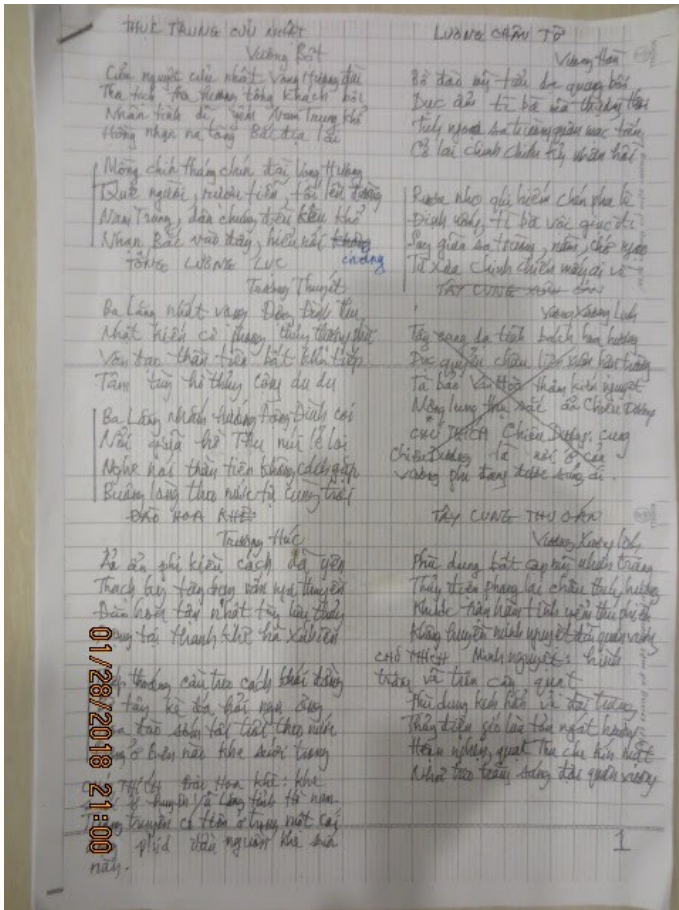 THỤC TRUNG CỬU NHẬT
Vương Bột
Cửu nguyệt cửu nhật vọng hương đài
Tha tịch tha hương tống khách bôi
Nhân tình dĩ yếm Nam Trung khổ
Hồng nhạn na tòng Bắc địa lai
Mồng chín tháng chín đài vọng hương
Quê người, rượu tiễn, tôi lên đường
Nam Trung, dân chúng đều kêu khổ
Nhạn Bắc vào đây, hiểu nỗi không
chăng
TỐNG LƯƠNG LỤC
Trương Thuyết
Ba Lăng nhất vọng Động Đình thu
Nhật kiến cô phong thủy thượng phù
Văn đạo thần tiên bất khả tiếp
Tâm tùy hồ thủy cộng du du
Ba Lăng nhắm hướng Động Đình coi
Nổi giữa hồ Thu núi lẻ loi
Nghe nói thần tiên không cách gặp
Buông lòng theo nước
ĐÀO HOA KHÊ
Trương Húc
Ẩn ẩn phi kiều cách dã yên
Thạch ky tây bạn vấn ngư thuyền
Đào hoa tận nhật tùy lưu thủy
thanh khê hà xứ biên
thoáng cầu treo cách khói đồng
tây kè đá hỏi ngư ông
đào sớm tối trôi theo nước
ở bên nào khe suối trong
THÍCH Đào Hoa khê: khe
huyện tỉnh Hồ nam
truyện có tiên ở trong một cái
phía đầu nguồn khe suối
này.
LƯƠNG CHÂU TỪ
Vương Hàn
Bồ đào mỹ tửu dạ quang bôi
Dục ẩm tì bà mã thượng thôi
Túy ngọa sa trường quân mạc tiếu
Cổ lai chinh chiến kỷ nhân hồi
Rượu nho quí hiếm chén pha lê
Định uống, tì bà vội giục đi
Say giữa sa trường, nằm, chớ ngạo
Từ xưa chinh chiến mấy ai về
TÂY CUNG XUÂN OÁN
Vương Xương Linh
Tây cung dạ tĩnh bách hoa hương
Dục quyển châu liêm xuân hận trường
Tà bão Vân Hòa thâm kiến nguyệt
Mông lung thụ sắc ẩn Chiêu Dương
CHÚ THÍCH Chiêu Dương: cung
Chiêu Dương là nơi ở của
vương phi đang được sủng ái.
TÂY CUNG THU OÁN
Vương Xương Linh
Phù dung bất cập mỹ nhân trang
Thủy điện phong lai châu thúy hương
Khước hận hàm tình yểm thu phiến
Không huyền minh nguyệt đãi quân vương
CHÚ THÍCH Minh nguyệt: hình
trăng vẽ trên cây quạt
Phù dung kém hẳn vẻ đài trang
Thủy điện gió lùa tỏa ngát hương
quạt Thu che kín mặt
Nhờ treo trăng sáng đợi quân vương
1
01/28/2018 21:00